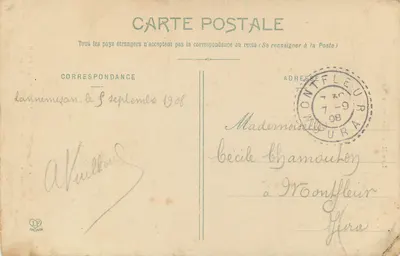 CARTE POSTALE
Tous les pays étrangers n'acceptent pas la correspondance au recto (Se renseigner à la Poste)
CORRESPONDANCE
Lannemezan le 5 septembre 1908
ADRESSE
MONTFLEUR
7-9
08
JURA
Mademoiselle
Cécile Chamouton
à Montfleur
Jura